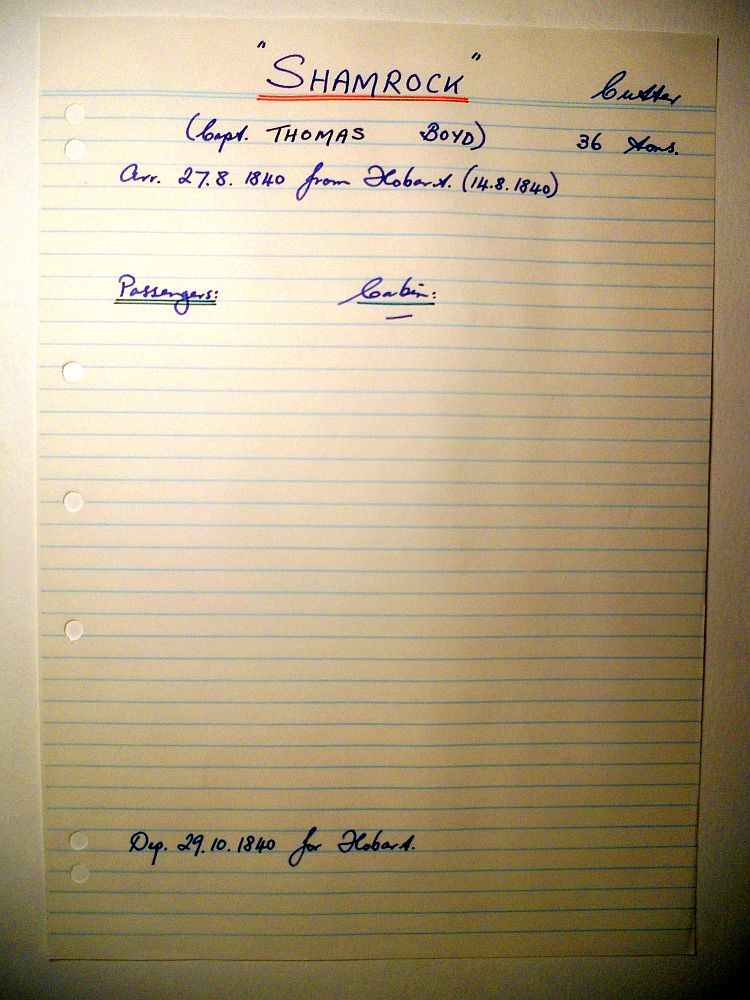 "SHAMROCK" Cutter
(Capt. THOMAS BOYD) 36 tons.
Arr. 27.8.1840 from Hobart. (14.8.1840)
Passengers: Cabin:
—
Dep. 29.10.1840 for Hobart.